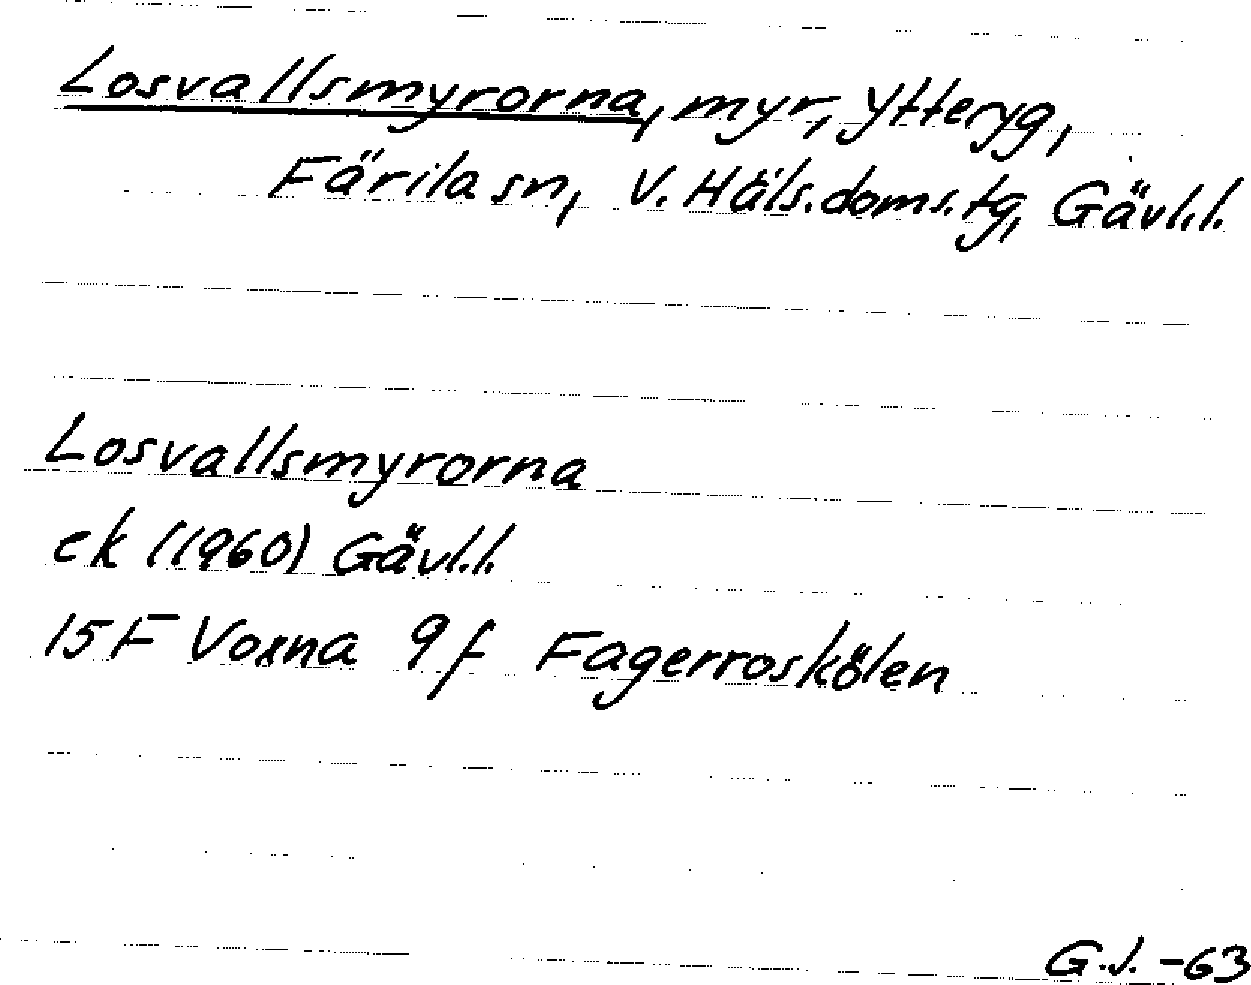 Losvallsmyrorna, myr, Ytteryg,
Färila sn, V. Häls. doms. tg, Gävl.l.
Losvallsmyrorna
ek (1960) Gävl.l.
15F Voxna 9f Fagerroskölen
G.J. -63